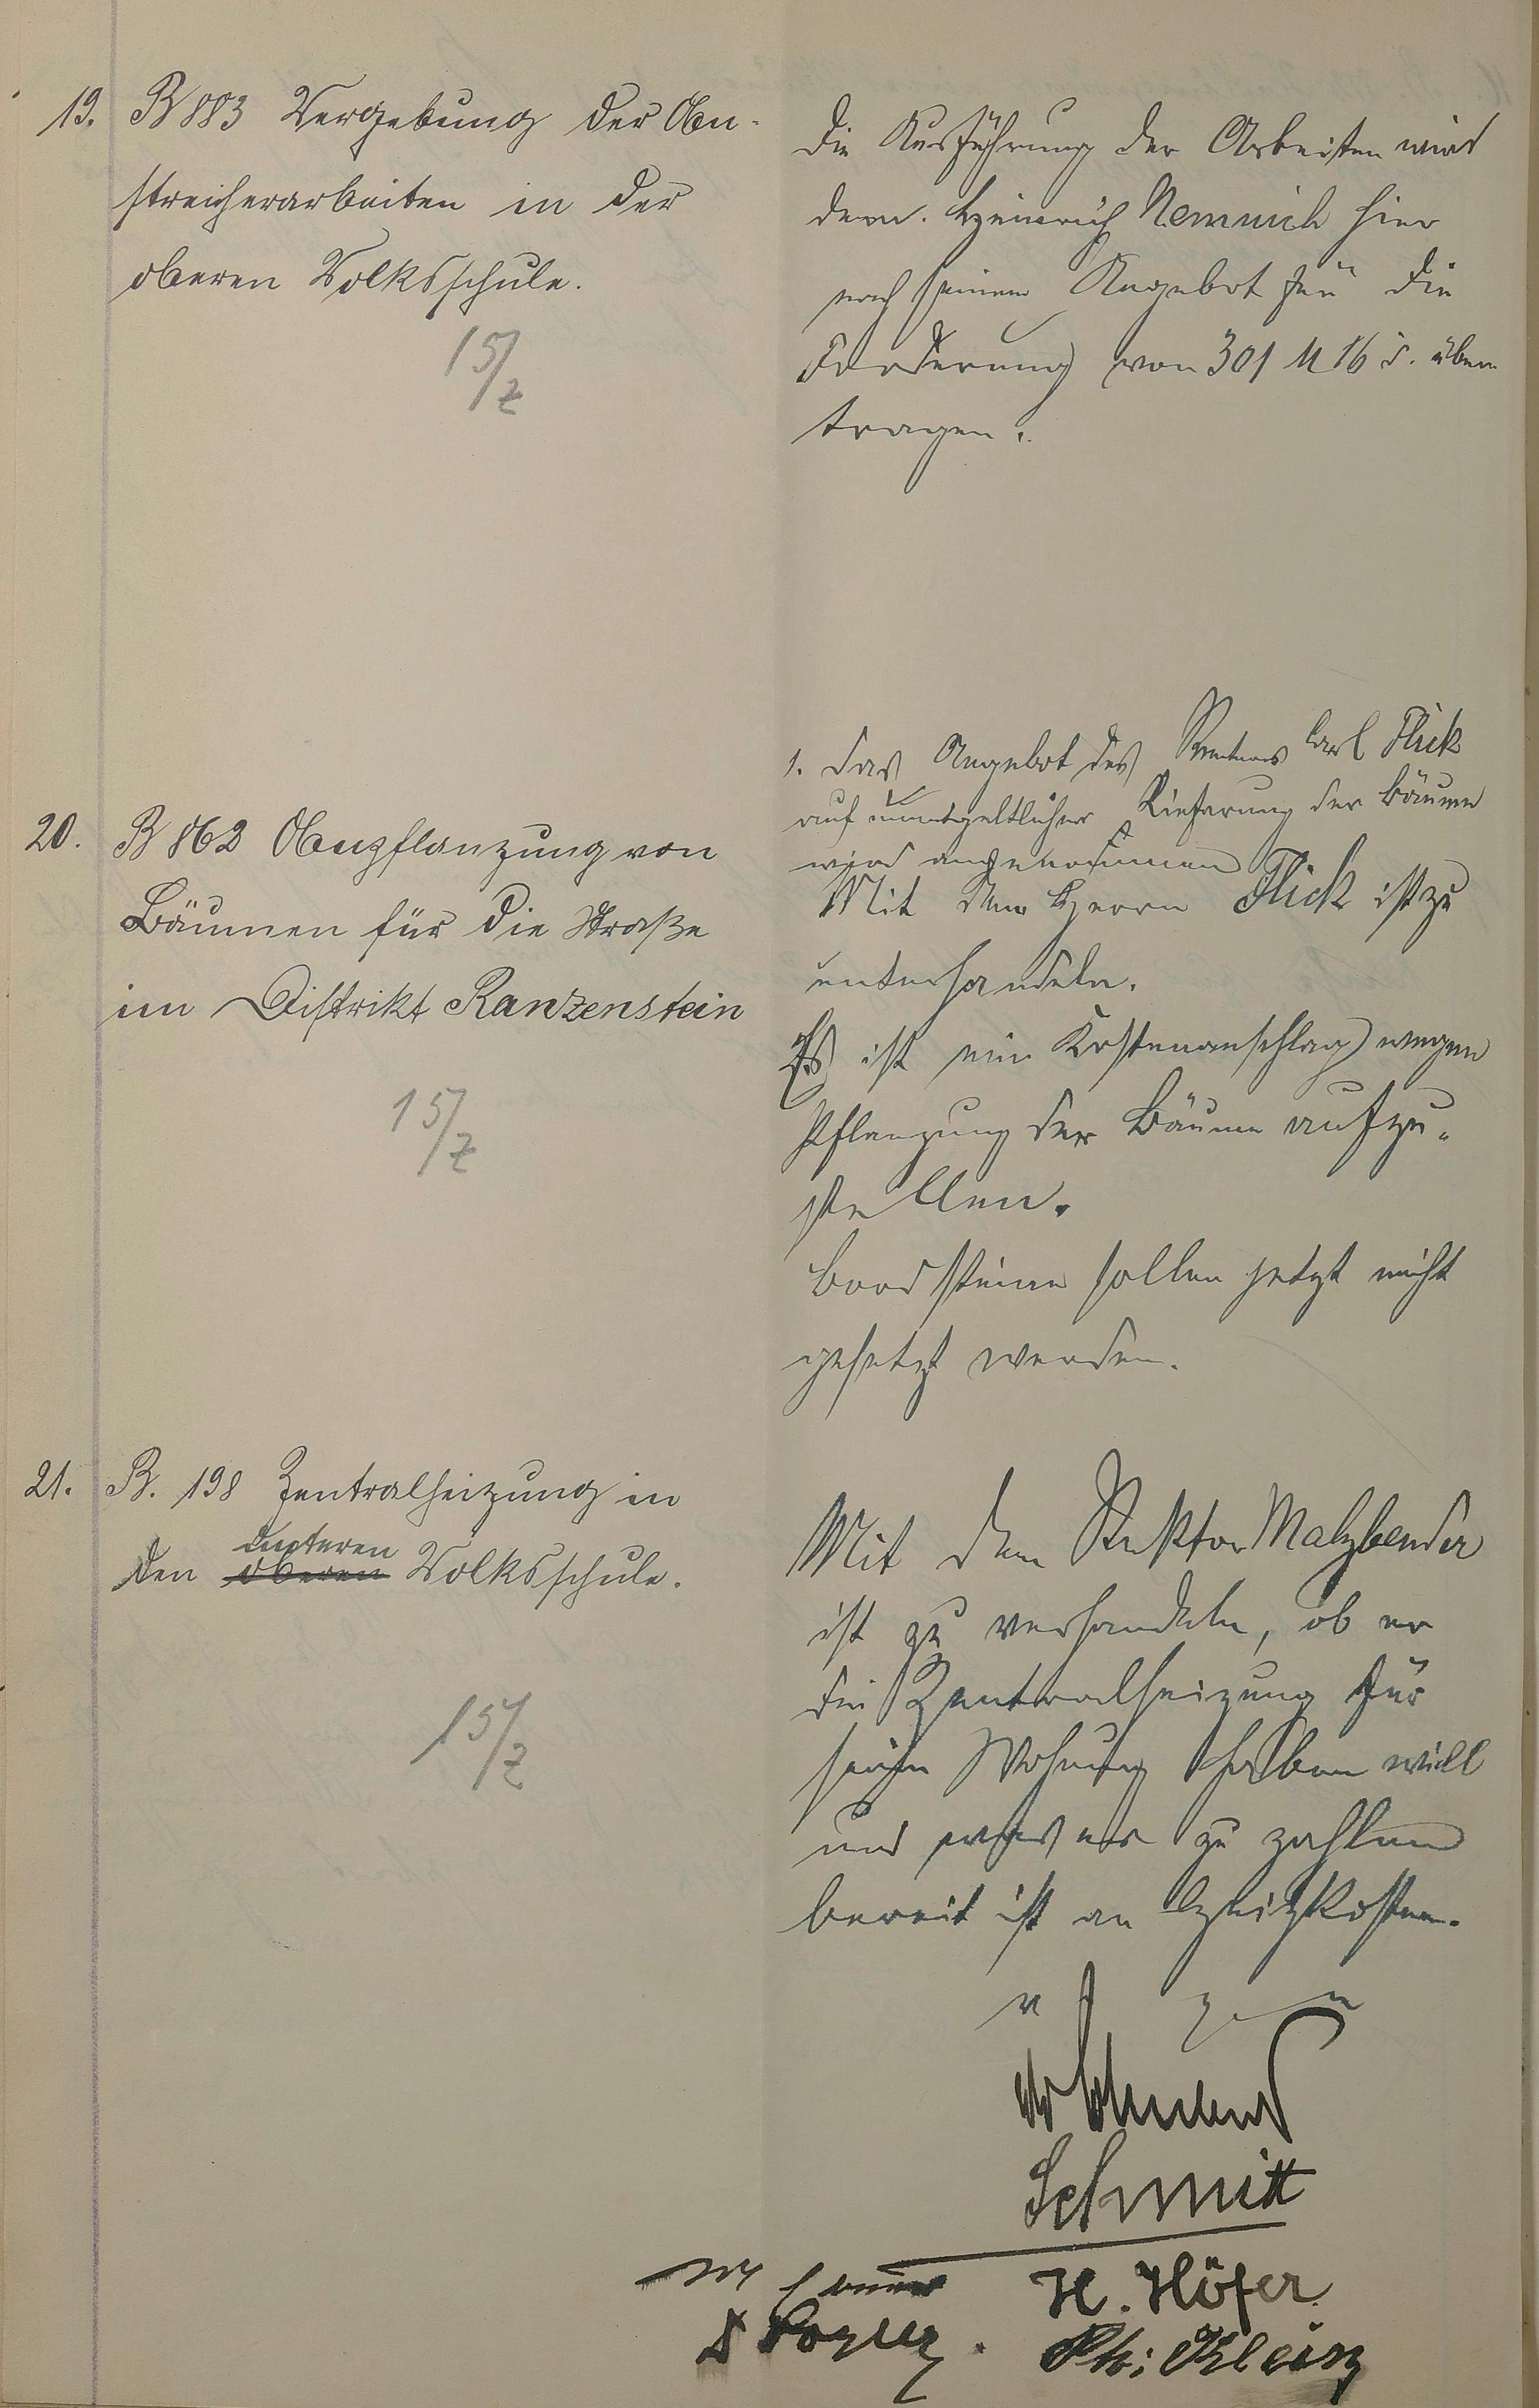 19. B 883 Vergebung der An-
streicherarbeiten in der
oberen Volksschule.
15/2
Die Ausführung der Arbeiten wird
dem Heinrich Nemnich hier
nach seinem Angebot für die
Forderung von 301 M 16 d. über
tragen.
20. B 862 Anpflanzung von
Bäumen für die Straße
im Distrikt Ranzenstein
15/2
1. Das Angebot des Rentners Carl Flick
auf unentgeltlicher Lieferung der Bäume
wird angenommen
Mit dem Herrn Flick ist zu
unterhandeln.
Es ist ein Kostenanschlag wegen
Pflanzung der Bäume aufzu-
stellen.
Bordsteine sollen jetzt nicht
gesetzt werden.
21. B. 198 Zentralheizung in
unteren
den oberen Volksschule.
15/2
Mit dem Rektor Malzbender
ist zu verhandeln, ob er
die Zentralheizung für
seine Wohnung haben will
und was er zu zahlen
bereit ist an Heizkosten.
Schmitt
H. Höfer
Ph: Klein